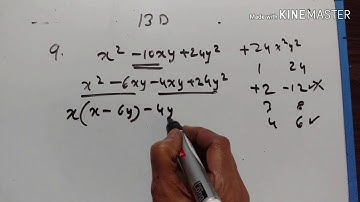 13D
Made with KINEMASTER
9. x² - 10xy + 24y² +24x²y²
x² - 6xy - 4xy + 24y² 1 24
+2 -12 ×
x(x - 6y) - 4y 3 8
4 6 ✓